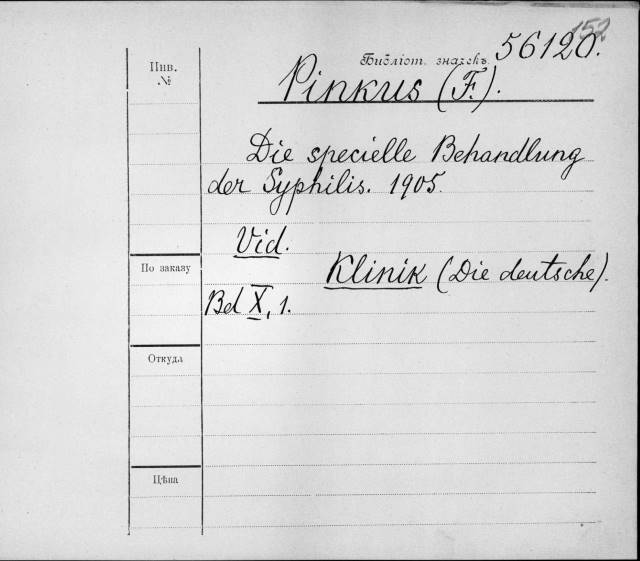 152
Библіот. значекъ. 56120.
Инв.
№
Pinkus (F.).
Die specielle Behandlung
der Syphilis. 1905.
Vid.
По заказу
Klinik (Die deutsche).
Bd X, 1.
Откуда
Цѣна